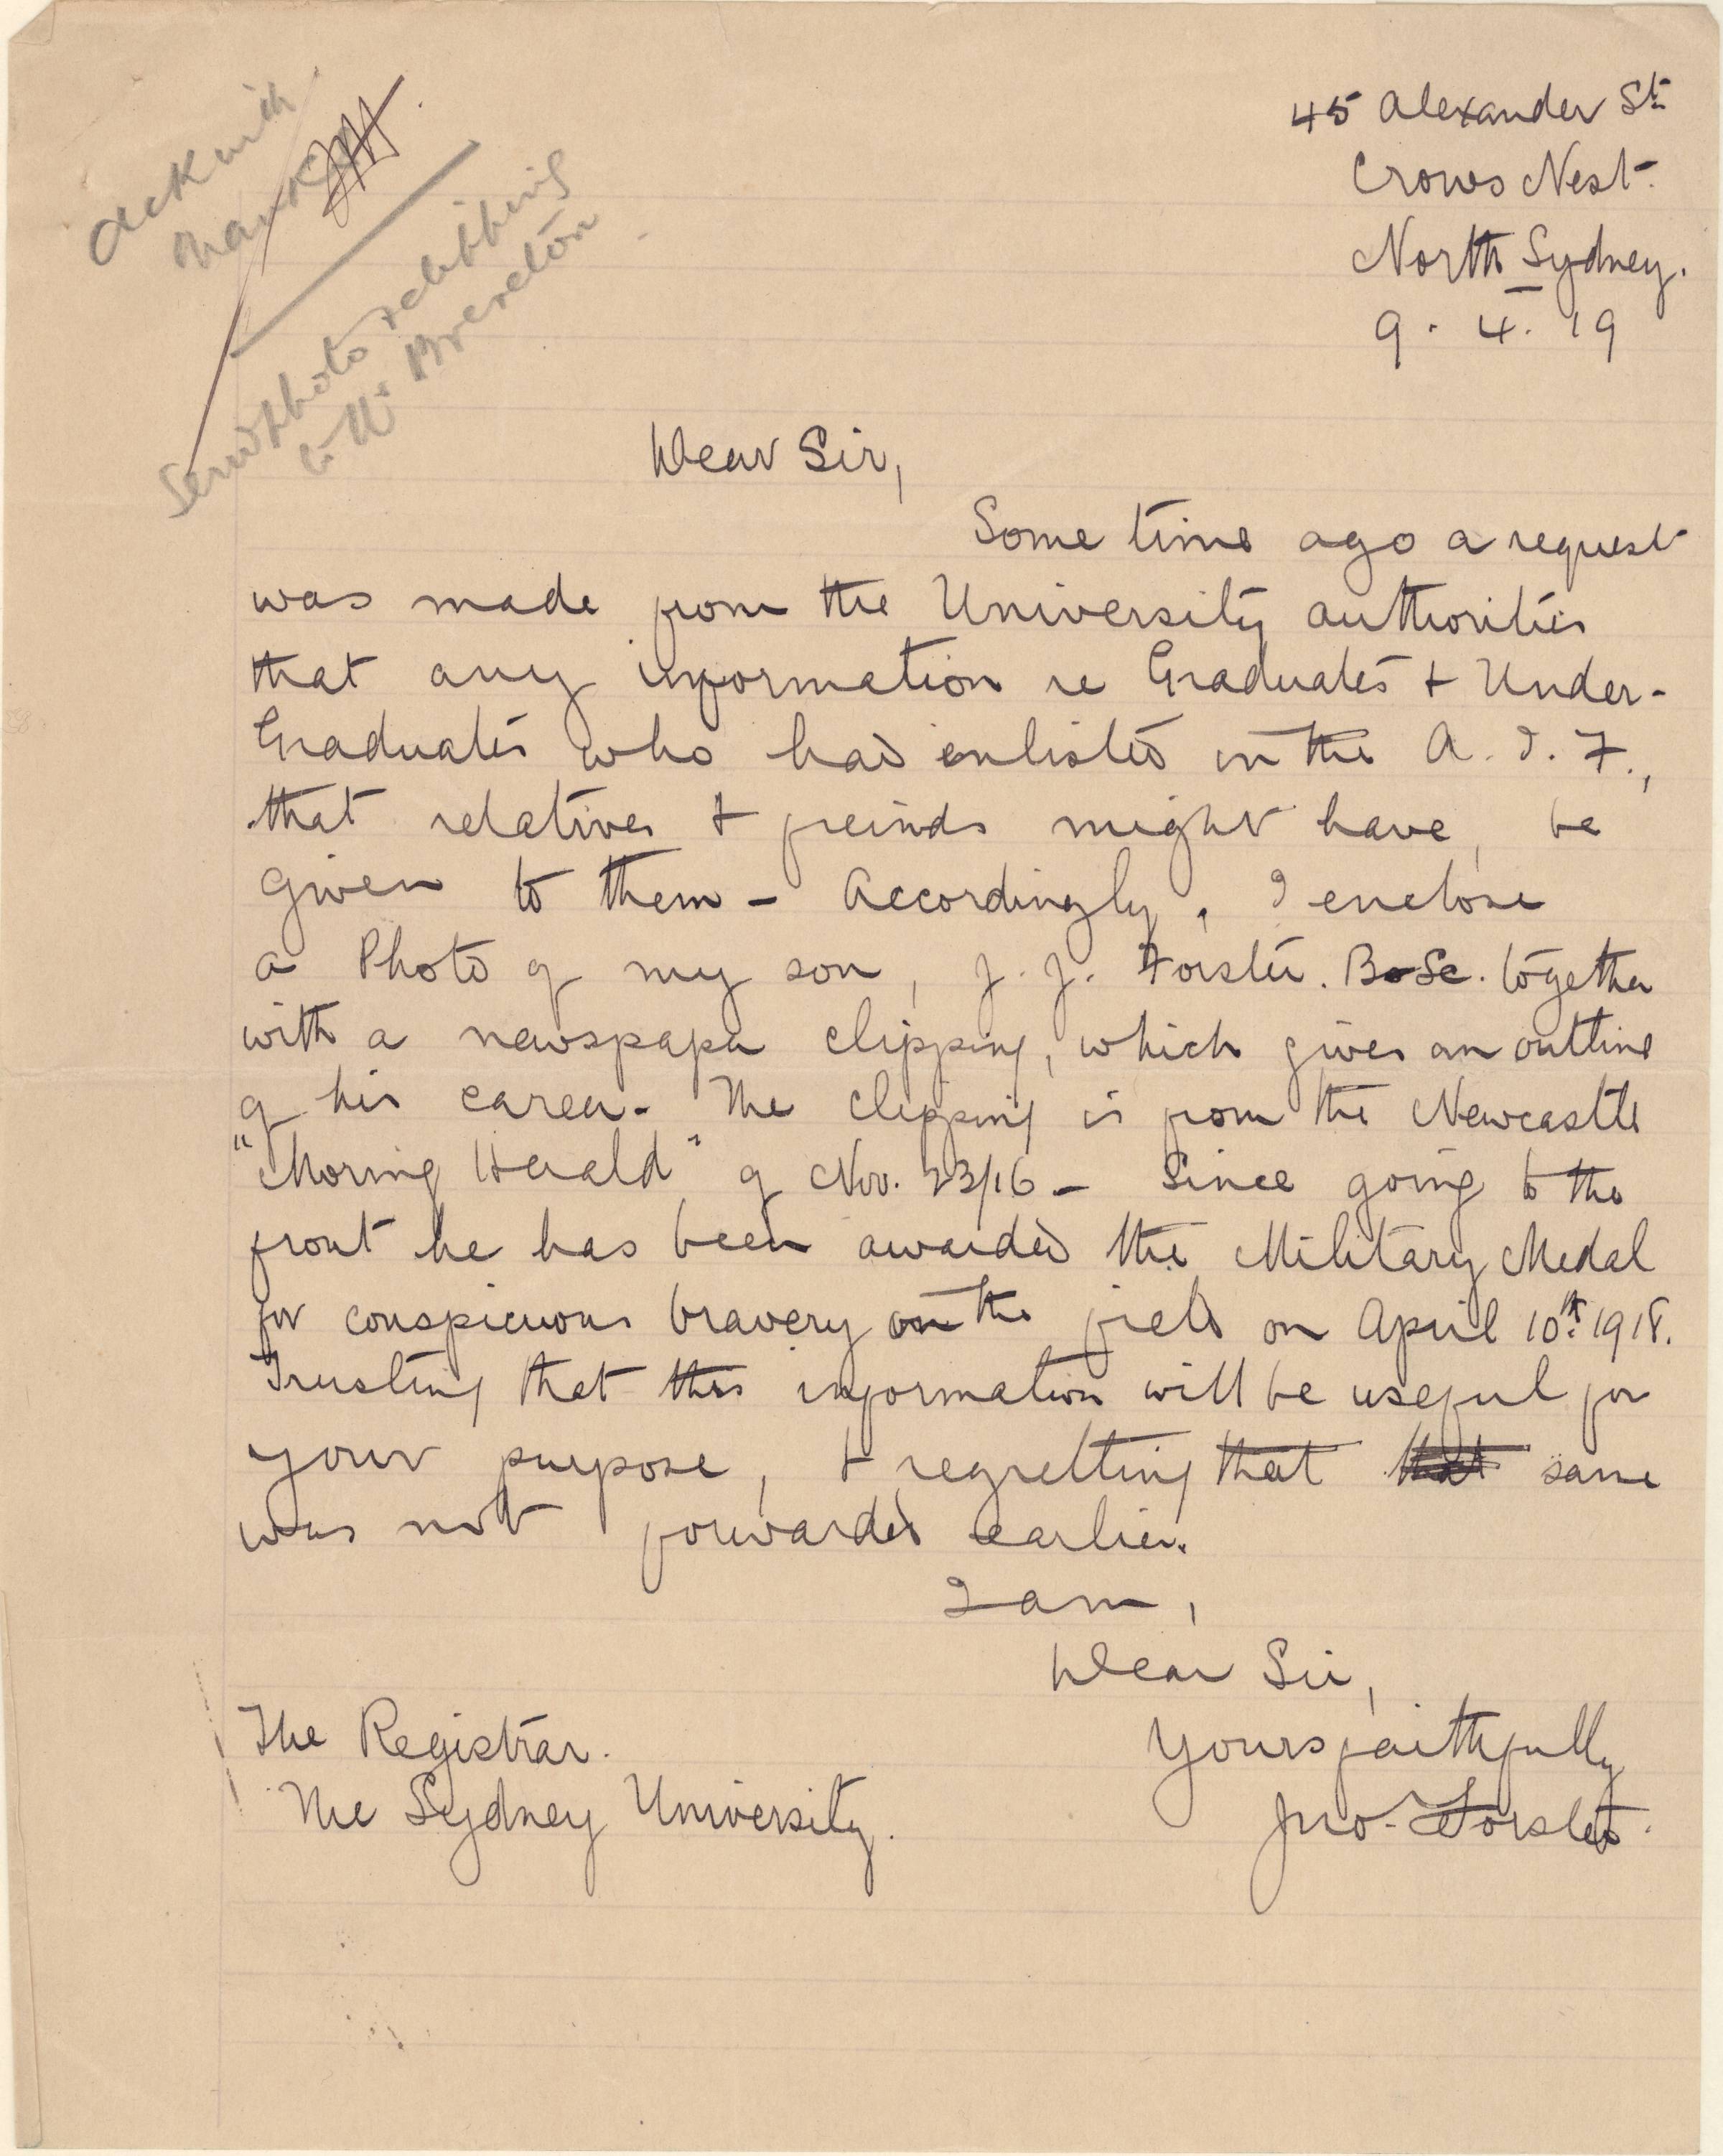 Ack with
thanks
Send photo & clipping
to Mr Brereton
45 Alexander St.
Crows Nest.
North Sydney.
9. 4. 19
Dear Sir,
Some time ago a request
was made from the University authorities
that any information re Graduates & Under-
Graduates who had enlisted in the A. I. F.,
that relatives & freinds might have, be
given to them - Accordingly, I enclose
a Photo of my son, J. J. Forster. B.Sc. together
with a newspaper clipping, which gives an outline
of his career. The clipping is from the Newcastle
"Morning Herald" of Nov. 23/16 - Since going to the
front he has been awarded the Military Medal
for conspicuous bravery on the field on April 10th. 1918.
Trusting that this information will be useful for
your purpose, & regretting that same
was not forwarded earlier.
I am,
Dear Sir,
Yours faithfully
Jno. Forster.
The Registrar.
The Sydney University.